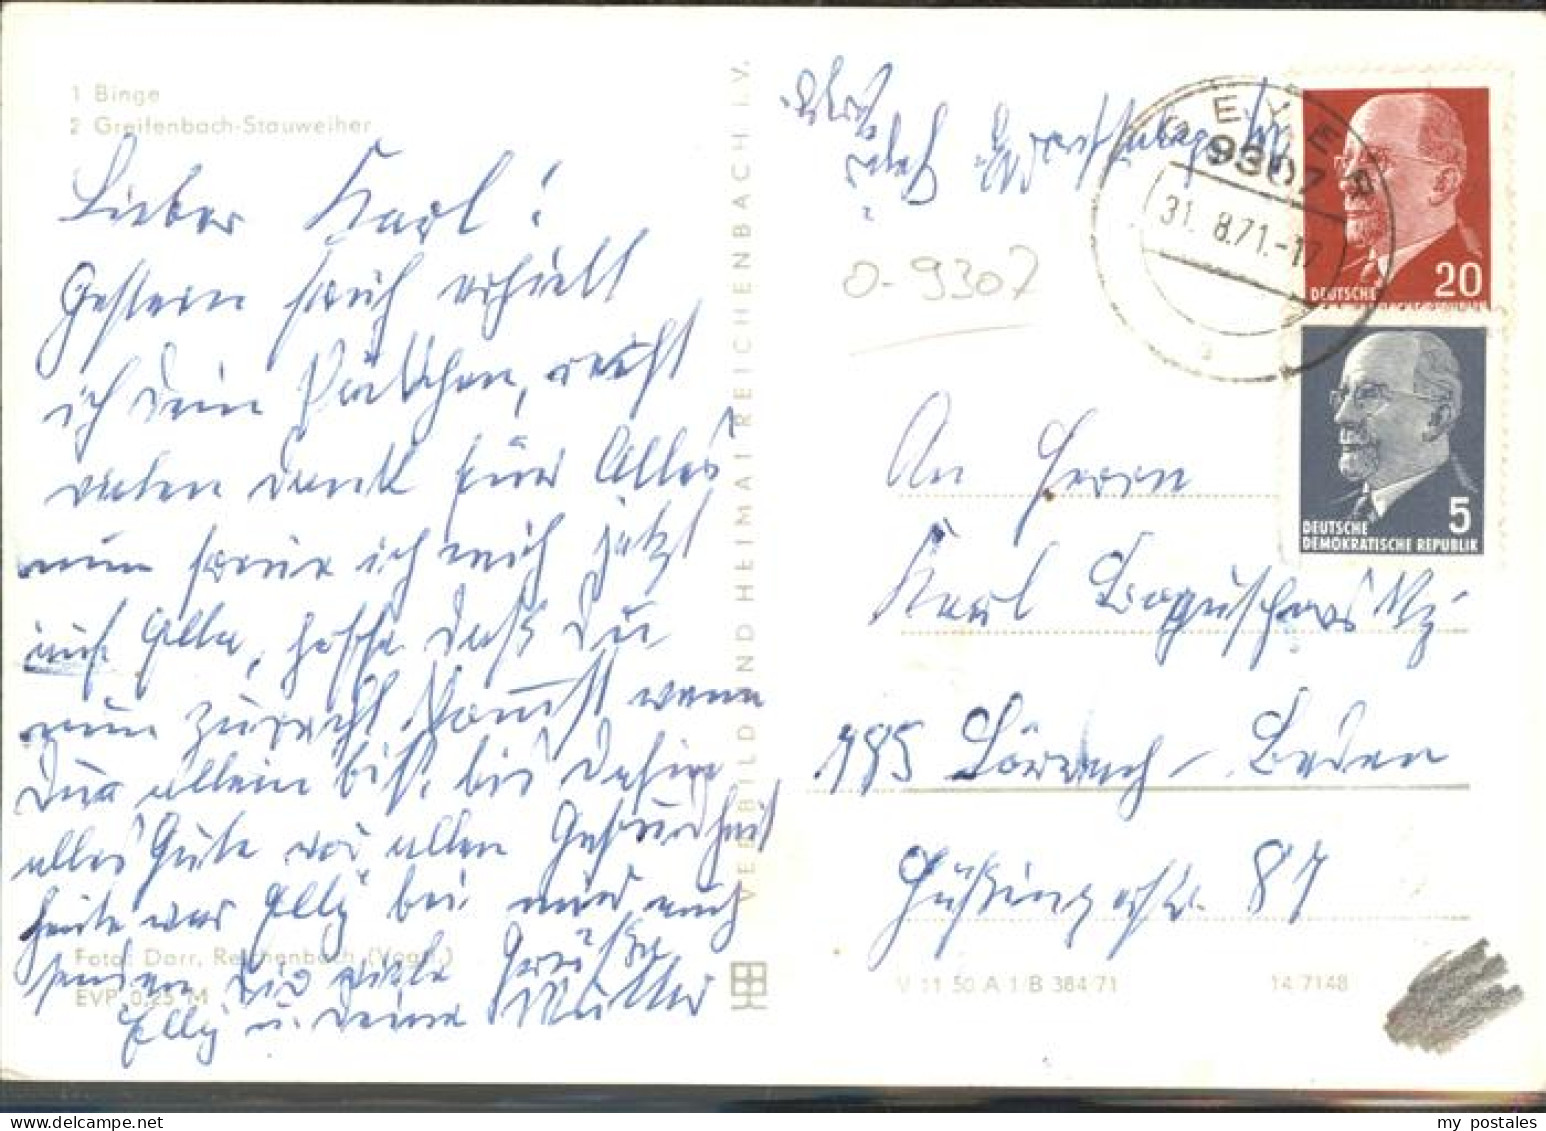 1 Binge
2 Greifenbach-Stauweiher
Lieber Karl!
Gestern früh erhielt
ich dein Päckchen, recht
vielen Dank für Alles
nun freue ich mich jetzt
auf Elle, hoffe daß Du
nun zurecht kommst wenn
Du allein bist. bis dahin
alles Gute vor allen Gesundheit
heute war Elly bei mir auch
senden Dir viele Grüße
Elly u. deine Mutter
Foto: Darr, Reichenbach (Vogtl.)
EVP 0,25 M
VEB BILD UND HEIMAT REICHENBACH I.V.
GEYER
9307
31. 8.71.-17
0-9307
20
DEUTSCHE
DEMOKRATISCHE REPUBLIK
5
DEUTSCHE
DEMOKRATISCHE REPUBLIK
An Herrn
Karl
785 Lörrach-Baden
87
V 11 50 A 1/B 384/71
14 7148
my postales